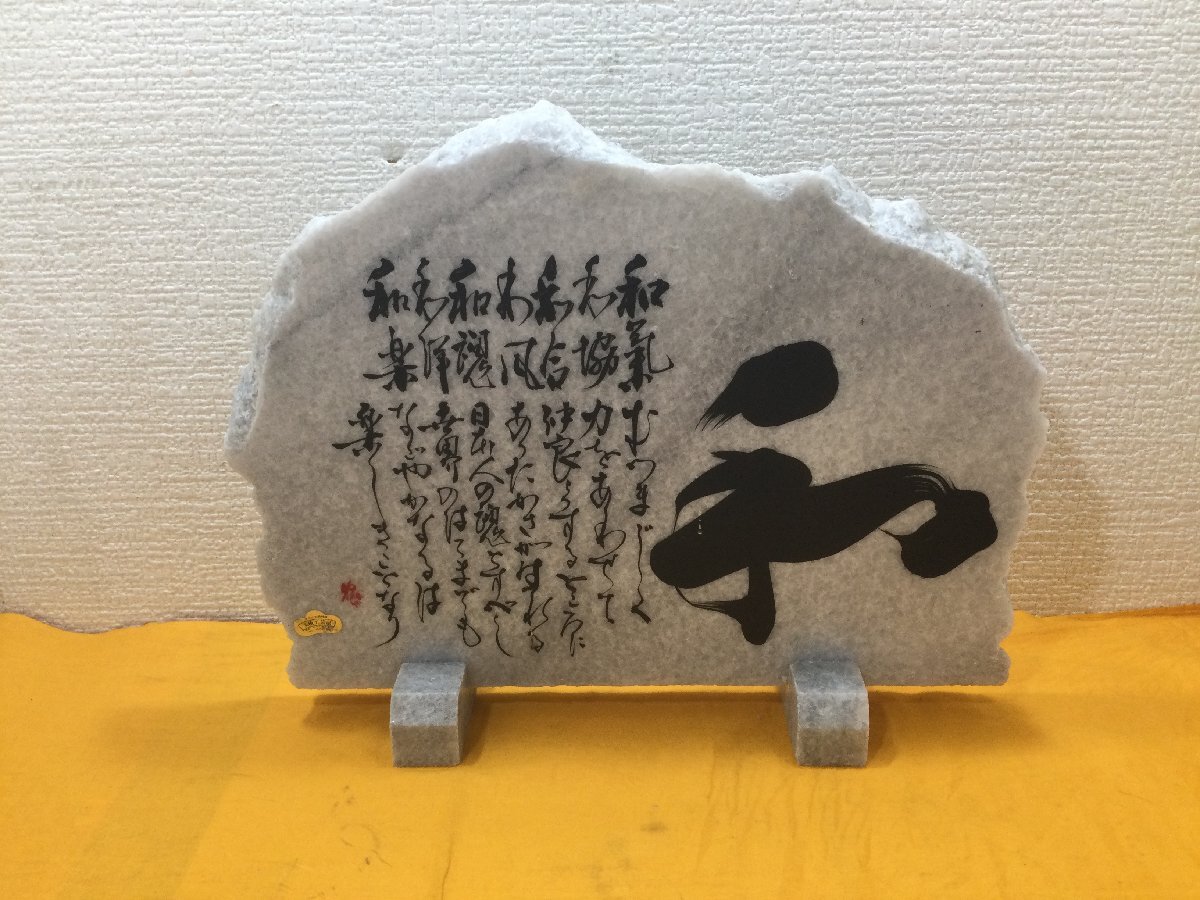 和
和氣 むつまじく
和協 力をあわせて
和合 仲良くするところに
和風 あたたかさが
和魂 日本人の魂とすべし
和洋 世界のはてまでも
和楽 なごやかなるは
楽しきことなり